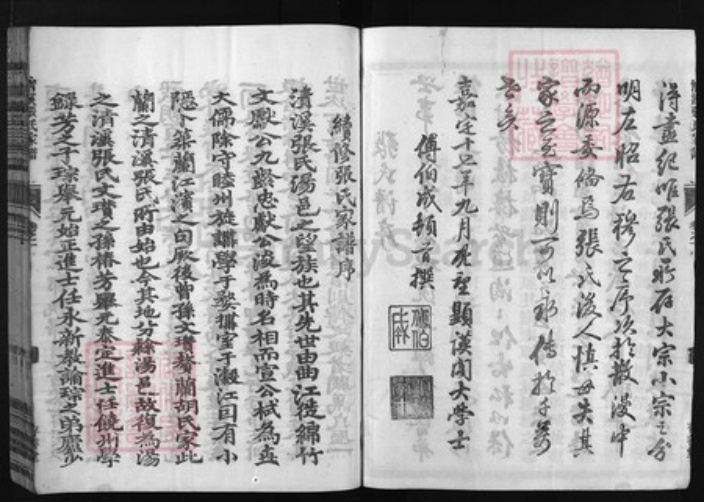 得盡紀唯張氏所存大宗小宗之分
明左昭右穆之序次於散漫中
而源委倫焉張氏後人慎毋失其
家之至寶則可以永傳於千萬
世矣
嘉定十七年九月既望顯謨閣大學士
傅伯成頓首撰
續修張氏家譜序
清溪張氏湯邑之望族也其先世由曲江徙綿竹
文獻公九齡忠獻公浚為時名相而宣公栻為
大儒除守睦州旋講學于婺攜室于瀔江因有小
隱卜築蘭江濱之句厥後曾孫文瓚贅蘭胡氏家此
蘭之清溪張氏所由始也今其地分隸湯邑故復為湯
之清溪張氏文瓚之孫椿芳舉元泰定進士任饒州學
錄芳之子琮舉元始正進士任永新教諭琮之弟